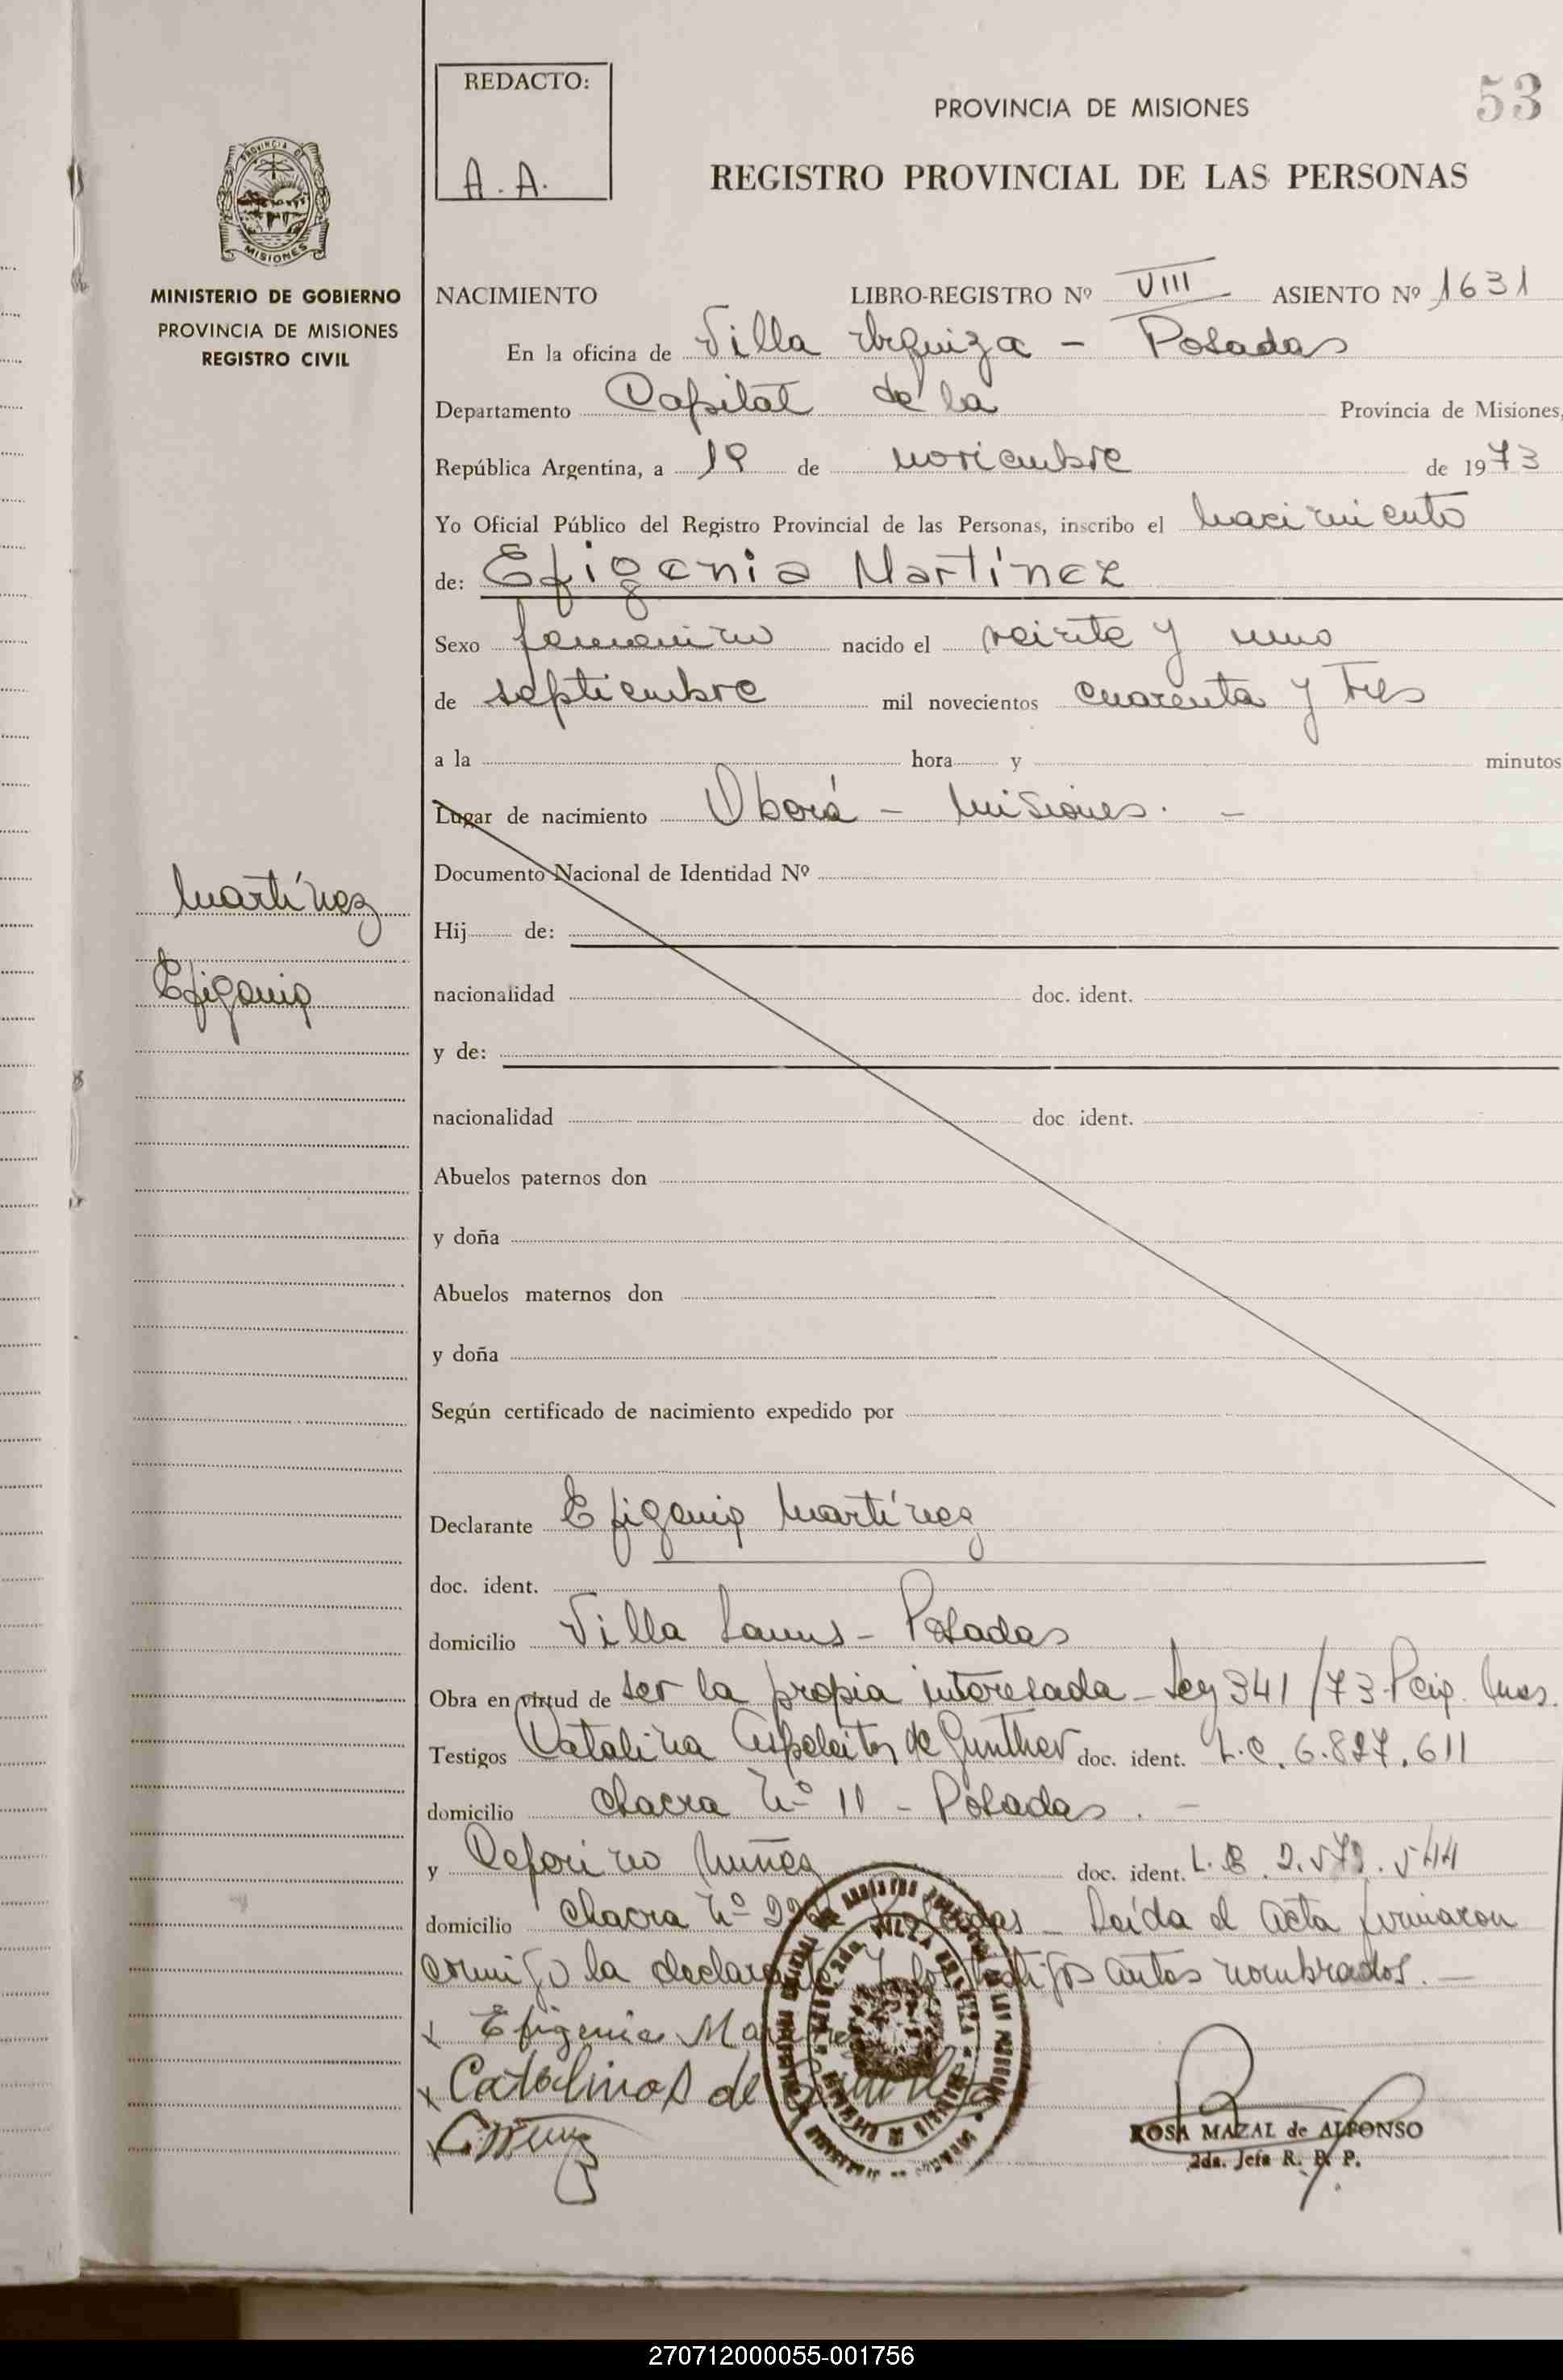 REDACTO:
A. A.
PROVINCIA DE MISIONES
53
REGISTRO PROVINCIAL DE LAS PERSONAS
MISIONES
MINISTERIO DE GOBIERNO
PROVINCIA DE MISIONES
REGISTRO CIVIL
NACIMIENTO LIBRO-REGISTRO Nº VIII ASIENTO Nº 1631
En la oficina de Villa Urquiza - Posadas
Departamento Capital de la Provincia de Misiones,
República Argentina, a 19 de noviembre de 1973
Yo Oficial Público del Registro Provincial de las Personas, inscribo el nacimiento
de: Efigenia Martínez
Sexo femenino nacido el veinte y uno
de septiembre mil novecientos cuarenta y tres
a la hora y minutos
Lugar de nacimiento Oberá - Misiones. -
Documento Nacional de Identidad Nº
Martínez
Efigenia
Hij de:
nacionalidad doc. ident.
y de:
nacionalidad doc. ident.
Abuelos paternos don
y doña
Abuelos maternos don
y doña
Según certificado de nacimiento expedido por
Declarante Efigenia Martínez
doc. ident.
domicilio Villa Lanus - Posadas
Obra en virtud de ser la propia interesada - Ley 341/73
Testigos Catalina de Gunther doc. ident. L.C. 6.827.611
domicilio Chacra Nº 11 - Posadas. -
y Ceferino Nuñez doc. ident. L.E.
domicilio Chacra Nº Posadas - Leída el acta firmaron
conmigo la declarante y los testigos antes nombrados. -
x Efigenia Martinez
x de
x
ROSA MAZAL de ALFONSO
2da. Jefa R. P. P.
270712000055-001756